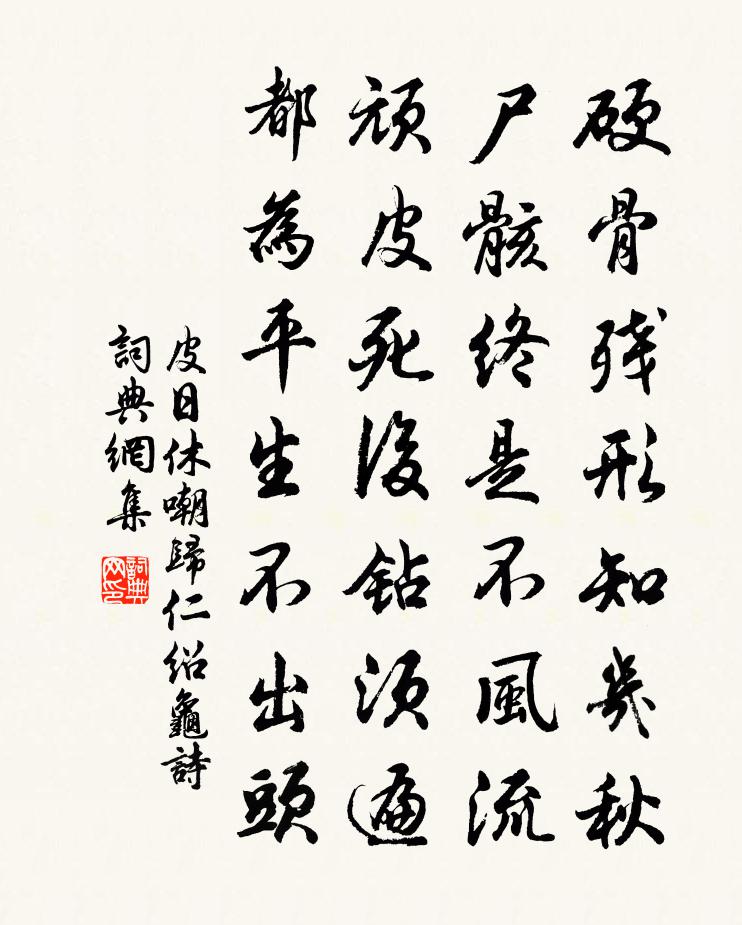 硬骨残形知幾秋
尸骸終是不風流
頑皮死後钻須遍
都為平生不出頭
皮日休嘲歸仁紹龜詩
詞典網集
詞典网印